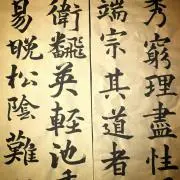 秀窮理盡性
端宗其道者
衛飜英輕池
易晩松陰難